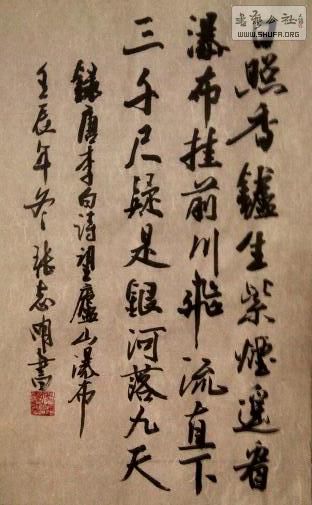 日照香鑪生紫煙遥看
瀑布挂前川飛流直下
三千尺疑是銀河落九天
録唐李白詩望廬山瀑布
壬辰年冬張志明書
書法公社
WWW.SHUFA.ORG